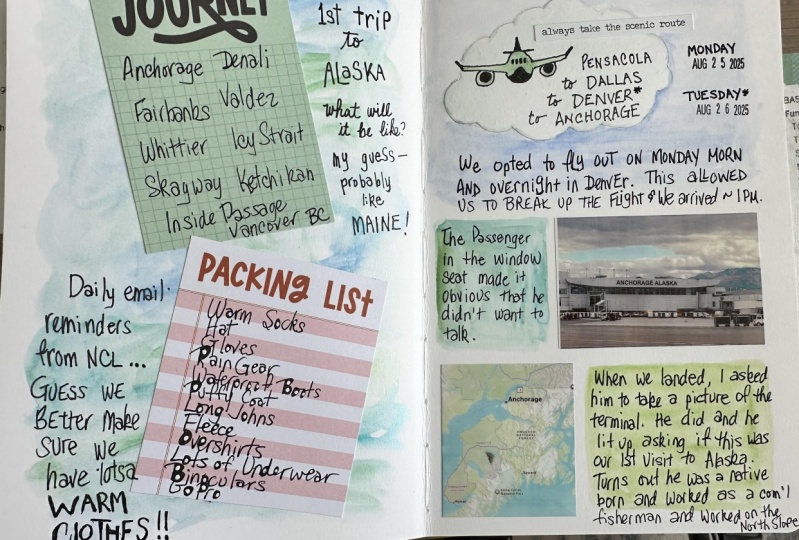 JOURNEY
Anchorage Denali
Fairbanks Valdez
Whittier Icy Strait
Skagway Ketchikan
Inside Passage
Vancover BC
1st trip
to
ALASKA
What will
it be like?
my guess—
probably
like
MAINE!
Daily email
reminders
from NCL...
GUESS WE
BETTER MAKE
SURE WE
have lotsa
WARM
CLOTHES!!
PACKING LIST
Warm Socks
Hat
Gloves
Rain Gear
Waterproof Boots
Puffy Coat
Long Johns
Fleece
Overshirts
Lots of Underwear
Binoculars
Go Pro
always take the scenic route
PENSACOLA
to DALLAS
to DENVER*
to ANCHORAGE
MONDAY
AUG 25 2025
TUESDAY*
AUG 26 2025
We opted to fly OUT ON MONDAY MORN
AND overnight in Denver. This ALLOWED
US TO BREAK UP THE Flight & We arrived ~ 1PM.
The Passenger
in the window
seat made it
obvious that he
didn't want to
talk.
ANCHORAGE ALASKA
Anchorage
When we landed, I asked
him to take a picture of the
terminal. He did and he
lit up asking if this was
our 1st visit to Alaska.
Turns out he was a native
born and worked as a com'l
fisherman and worked on the
North Slope